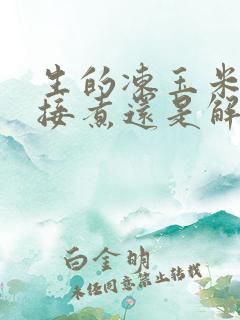 生的凍玉米
接煮還是解
白金明
未经同意禁止转载